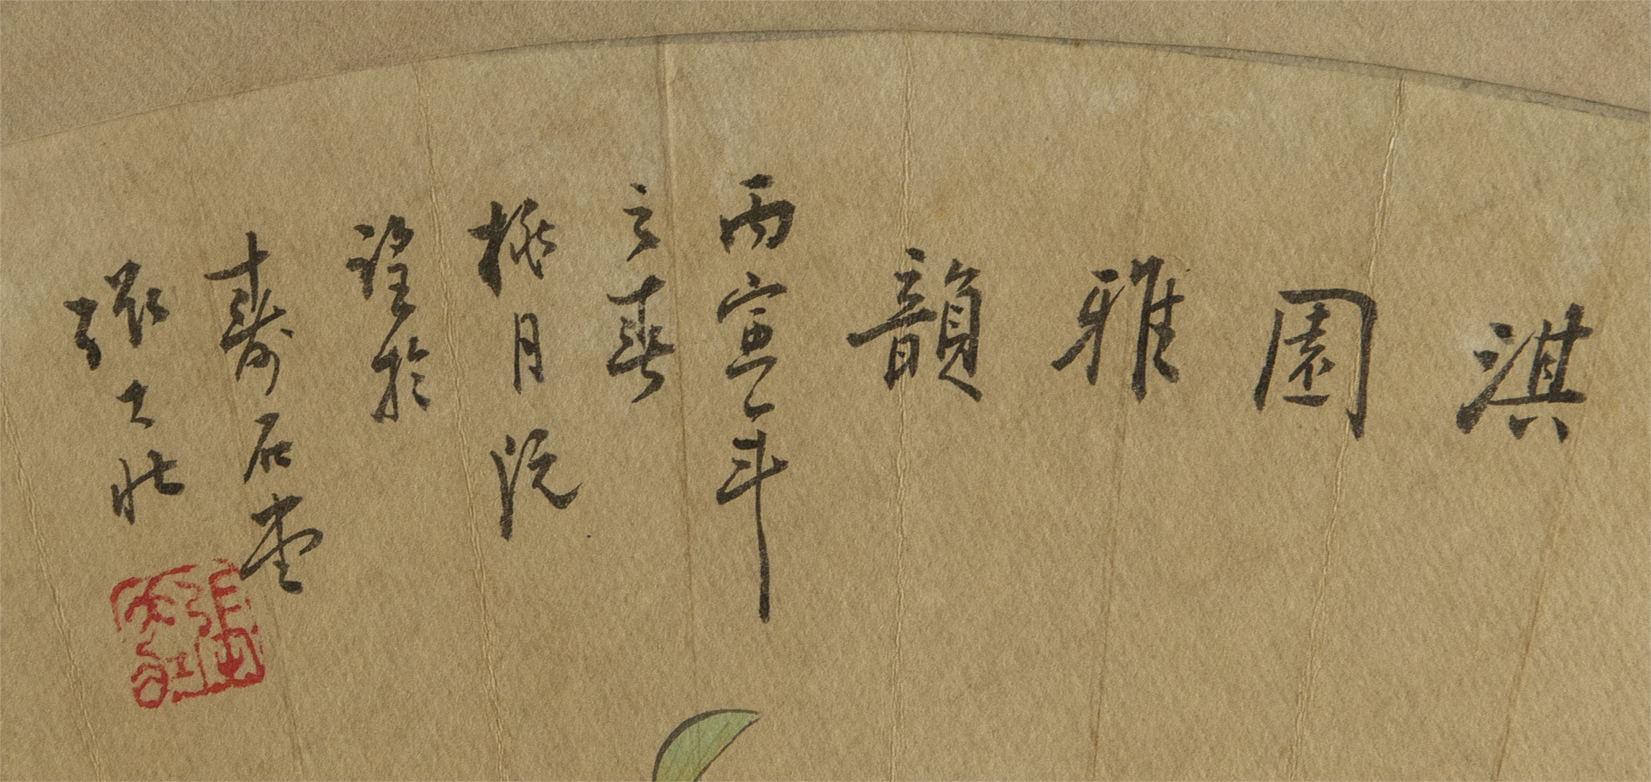 淇園雅韻
丙寅年
之春
桃月既
望於
壽石堂
張